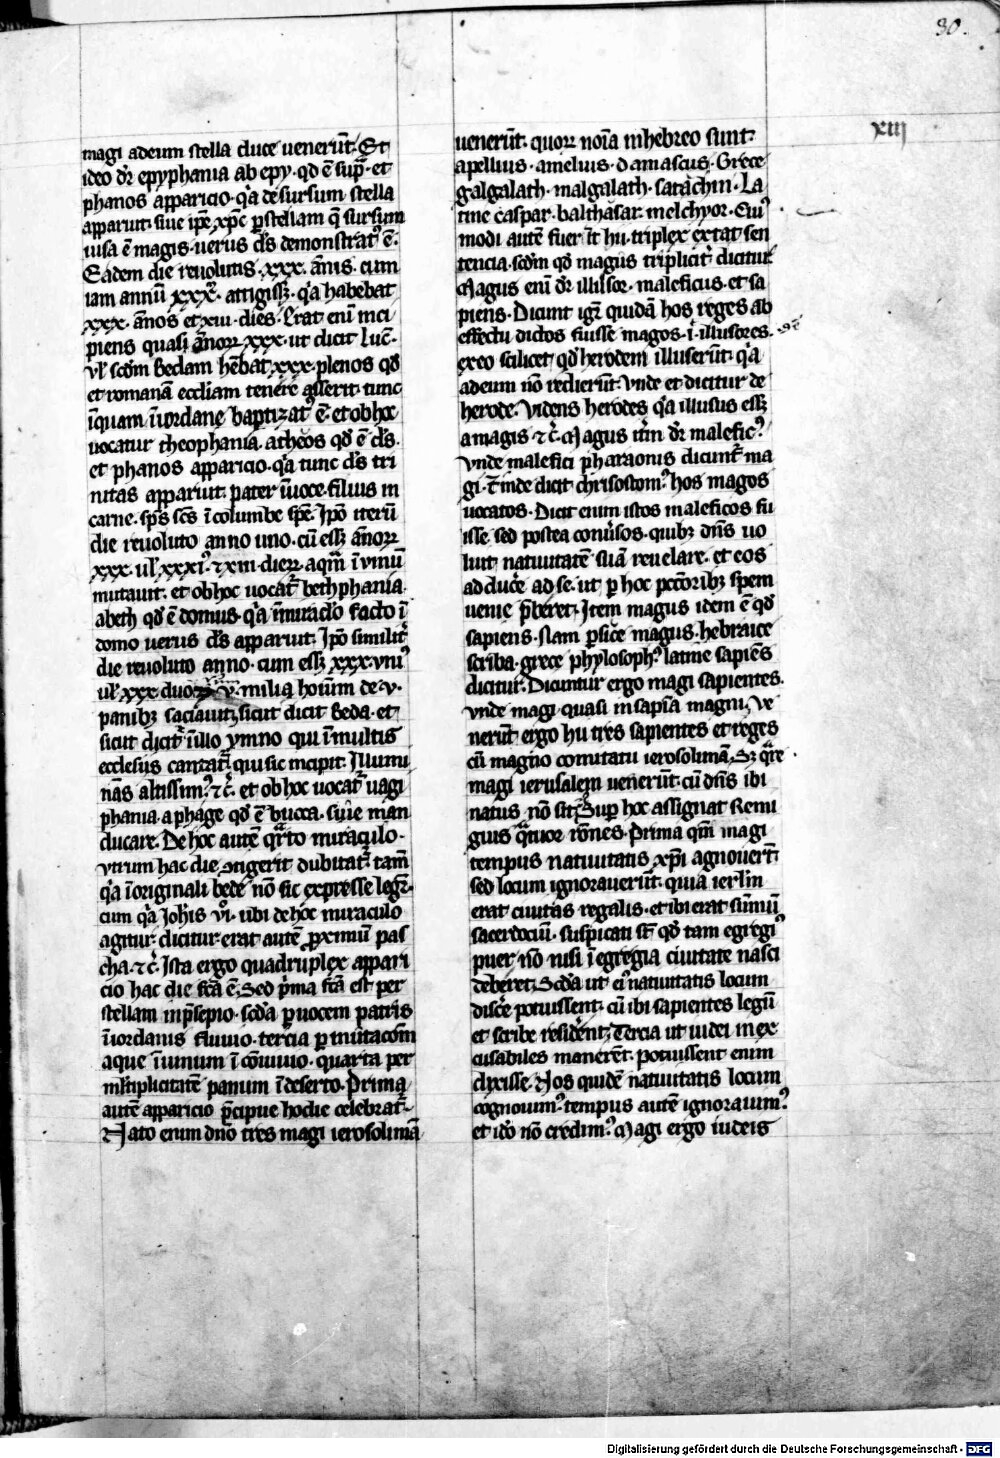 30.
xiij
magi adeum stella duce uenerūt. Et
ideo dr̄ epyphania ab epy. qd̄ ē supͣ. et
phanos apparicio. qͥa desursum stella
apparuit. siue ip̄e xp̄c ꝑ stellam q̄ sursum
uisa ē magis. uerus ds̄ demonstratꝰ ē.
Eadem die reuolutis .xxx. ānis. cum
iam annū xxx. attigissꝫ. qͥa habebat
xxx. ānos et xiii. dies. Erat enī inci
piens quasi ānoꝝ xxx. ut dicit luc̄.
ul̓ scdm̄ Bedam hēbat xxx. plenos qd̓
et romanā eccliam tenere asserit. tunc
īquam ī iordane baptizatꝰ ē. et ob hoc
uocatur theophania. a theos qd̓ ē ds̄.
et phanos apparicio. qͥa tunc ds̄ tri
nitas apparuit. pater ī uoce. filius in
carne. sp̄s sc̄s ī columbe sp̄e. Ip̄o iterū
die reuoluto anno uno. cū essꝫ ānoꝝ
xxx. ul̓ xxxi. et xiii dieꝝ. aqm̄ ī vinū
mutauit. et ob hoc uocat᷑ bethphania.
a beth qd̓ ē domus. qͥa ī miraclo facto ī
domo uerus ds̄ apparuit. Ip̄o similit᷑
die reuoluto anno. cum essꝫ xxx. vniꝰ
ul̓ xxx. duoꝝ v. milia hoīum de .v.
panibꝫ saciauit. sicut dicit Beda. et
sicut dicit᷑ ī illo ymno qui ī multis
ecclesiis cantat᷑. qui sic incipit. Illumi
nās altissimꝰ. ⁊c̄. et ob hoc uocat᷑ uagi
phania. a phage qd̓ ē bucca. siue man
ducare. De hoc autē qͣrto miraculo.
vtrum hac die ꝯtigerit dubitat᷑. tam̄
qͥa ī originali bede nō sic expresse legit᷑.
cum qͥa Joh̄is vi. ubi de hoc miraculo
agitur. dicitur. erat autē ꝓximū pas
cha. ⁊c̄. Ista ergo quadruplex appari
cio hac die fc̄a ē. Sed pͥma fc̄a est per
stellam in p̄sepio. scd̄a ꝑ uocem patris
ī iordanis fluuio. tercia ꝑ mutacōm
aque ī uinum ī cōuiuio. quarta per
ml̓tiplicitatē panum ī deserto. Prima
autē apparicio p̄cipue hodie celebrat᷑.
Nato enim dn̄o tres magi ierosolimā
uenerūt. quoꝝ noīa in hebreo sunt.
apellius. amelius. damascus. Grece
galgalath. malgalath. sarachin. La
tine caspar. balthasar. melchyor. Cuiꝰ
modi autē fuerīt hii. triplex extat sen
tencia. scdm̄ qd̓ magus triplicit᷑ dicitur.
Magus eni dr̄ illisor. maleficus. et sa
piens. Dicunt igr̄ quidā hos reges ab
effectu dictos fuisse magos .i. illusores.
ex eo scilicet qd̓ herodem illuserūt. qͥa
ad eum nō redierūt. Vnde et dicitur de
herode. Videns herodes qͥa illusus essꝫ
a magis ⁊c̄. Magus itīn dr̄ maleficꝰ.
vnde malefici pharaonis dicunt᷑ ma
gi. Et inde dicit chrisostomꝰ hos magos
uocatos. Dicit enim istos maleficos fu
isse. sed postea conūsos. quibꝫ dn̄s uo
luit natiuitatē suā reuelare. et eos
ad duc̓e ad se. ut ꝑ hoc pctōribꝫ spem
uenie p̄beret. Item magus idem ē qd̓
sapiens. Nam ꝑsice magus. hebraice
scriba. grece phylosophꝰ. latine sapiēs
dicitur. Dicuntur ergo magi sapientes.
vnde magi quasi in sapīa magni. Ve
nerūt ergo hii tres sapientes et reges
cū magno comitatu ierosolimā. Sꝫ qͣre
magi ierusalem uenerūt. cū dn̄s ibi
natus nō sit. Suꝑ hoc assignat Remi
gius qͣtuor rōnes. Prima qm̄ magi
tempus natiuitatis xp̄i agnouerūt.
sed locum ignorauerūt. quia ierl̄m
erat ciuitas regalis. et ibi erat sūmū
sacerdociū. suspicati st̄ qd̓ tam egregiꝰ
puer nō nisi ī egregia ciuitate nasci
deberet. Scd̄a ut ciꝰ natiuitatis locum
disc̓e potuissent. cū ibi sapientes legū
et scribe residerent. Tercia ut iudei inex
cusabiles manerēt. potuissent enim
dixisse. Nos quidē natiuitatis locum
cognouimꝰ. tempus autē ignorauimꝰ.
et idō nō credimꝰ. Magi ergo iudeis
Digitalisierung gefördert durch die Deutsche Forschungsgemeinschaft - DFG